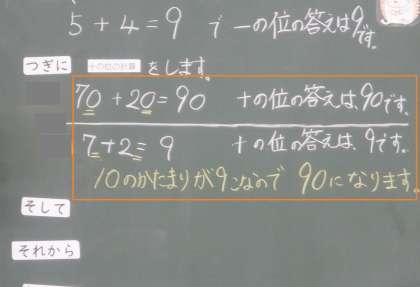 5+4=9 で 一の位の答えは9です。
つぎに 十の位の計算 をします。
70+20=90 十の位の答えは、90です。
7+2=9 十の位の答えは、9です。
10のかたまりが9こなので 90になります。
そして
それから